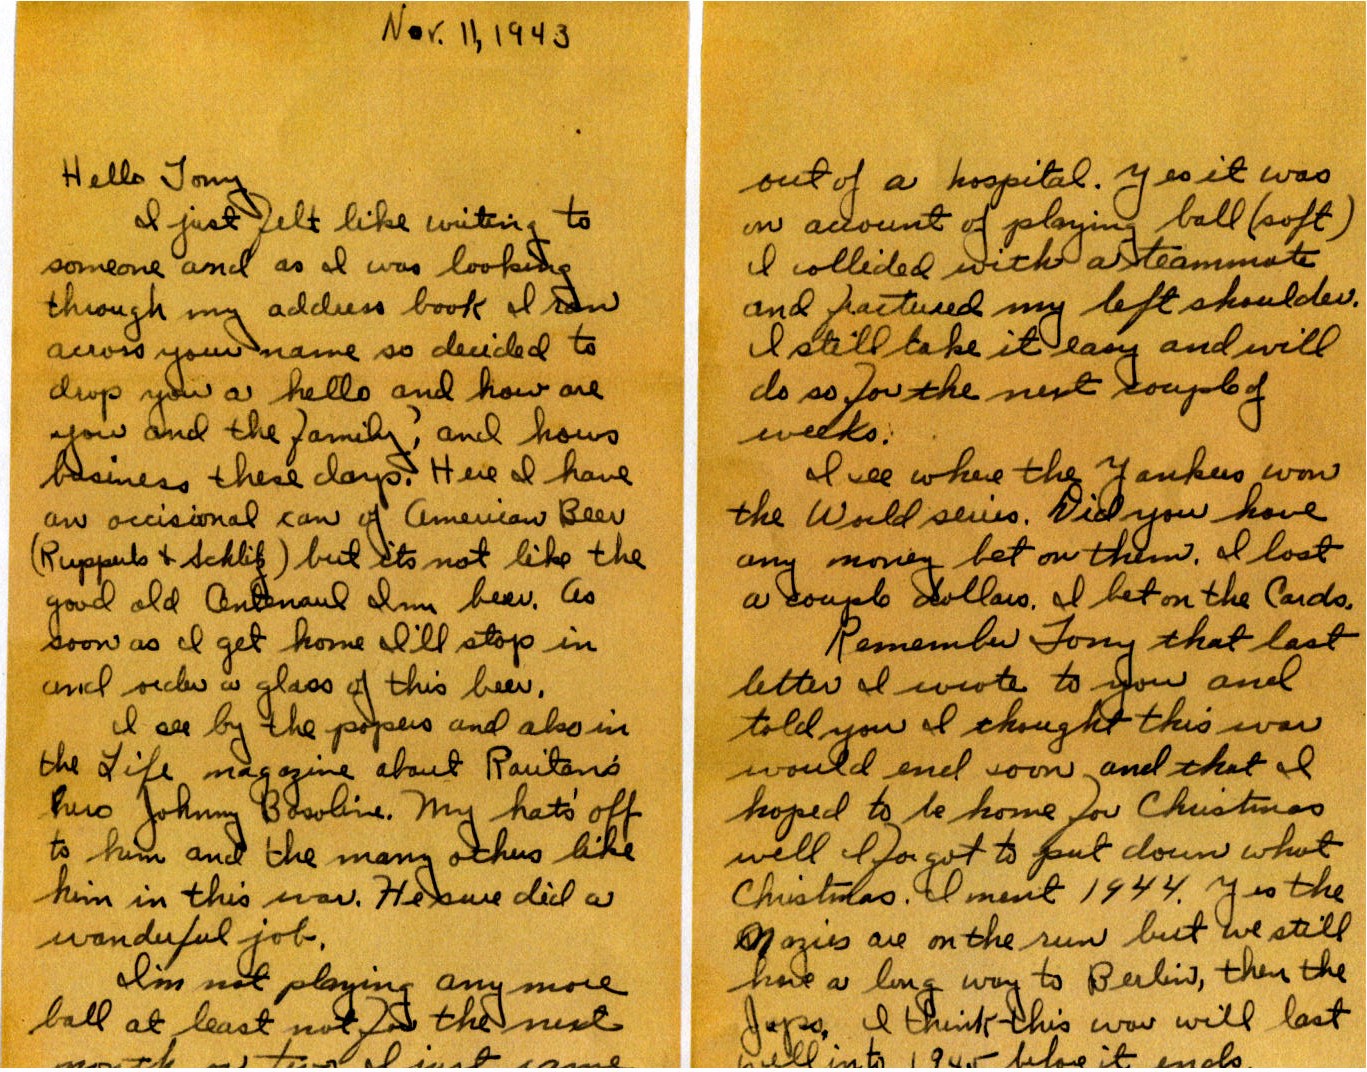 Nov. 11, 1943
Hello Tony
I just felt like writing to
someone and as I was looking
through my address book I ran
across your name so decided to
drop you a hello and how are
you and the family, and hows
business these days? Here I have
an occisional can of American Beer
(Rupperts & Schlitz) but its not like the
good old Inn beer. As
soon as I get home I'll stop in
and order a glass of this beer.
I see by the papers and also in
the Life magazine about Raritan's
hero Johnny Basoline. My hat's off
to him and the many others like
him in this war. He sure did a
wonderful job.
I'm not playing any more
ball at least not for the next
month or two I just came
out of a hospital. Yes it was
on account of playing ball (soft)
I collided with a teammate
and fractured my left shoulder.
I still take it easy and will
do so for the next couple of
weeks.
I see where the Yankees won
the World series. Did you have
any money bet on them. I lost
a couple dollars. I bet on the Cards.
Remember Tony that last
letter I wrote to you and
told you I thought this war
would end soon and that I
hoped to be home for Christmas
well I forgot to put down what
Christmas. I ment 1944. Yes the
Nazies are on the run but we still
have a long way to Berlin, then the
Japs. I think this war will last
well into 1945 before it ends.